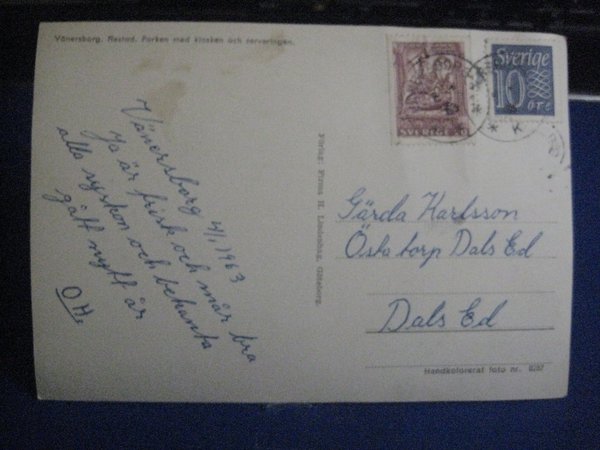 Vänersborg. Restad. Parken med kiosken och serveringen.
Vänersborg 4/1 1963
Ja är frisk och mår bra
alla syskon och bekanta
gått nytt år
O.H.
Förlag: Firma H. Lindenhag, Göteborg.
SVERIGE
Sverige
10
ÖRE
Gärda Karlsson
Östa torp Dals Ed
Dals Ed
Handkolorerat foto nr.